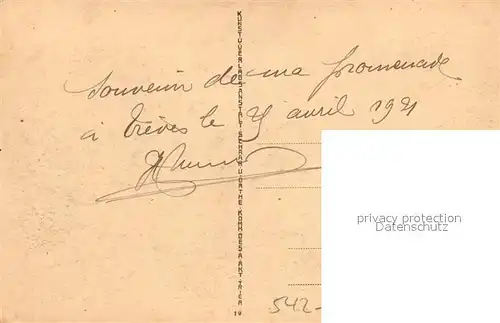 Souvenir de ma promenade
à Trèves le 25 avril 1921
KUNSTVERLAGSANSTALT SCHAAR U. DATHE KOMM.-GES. A. AKT. TRIER
19
privacy protection
Datenschutz
542-